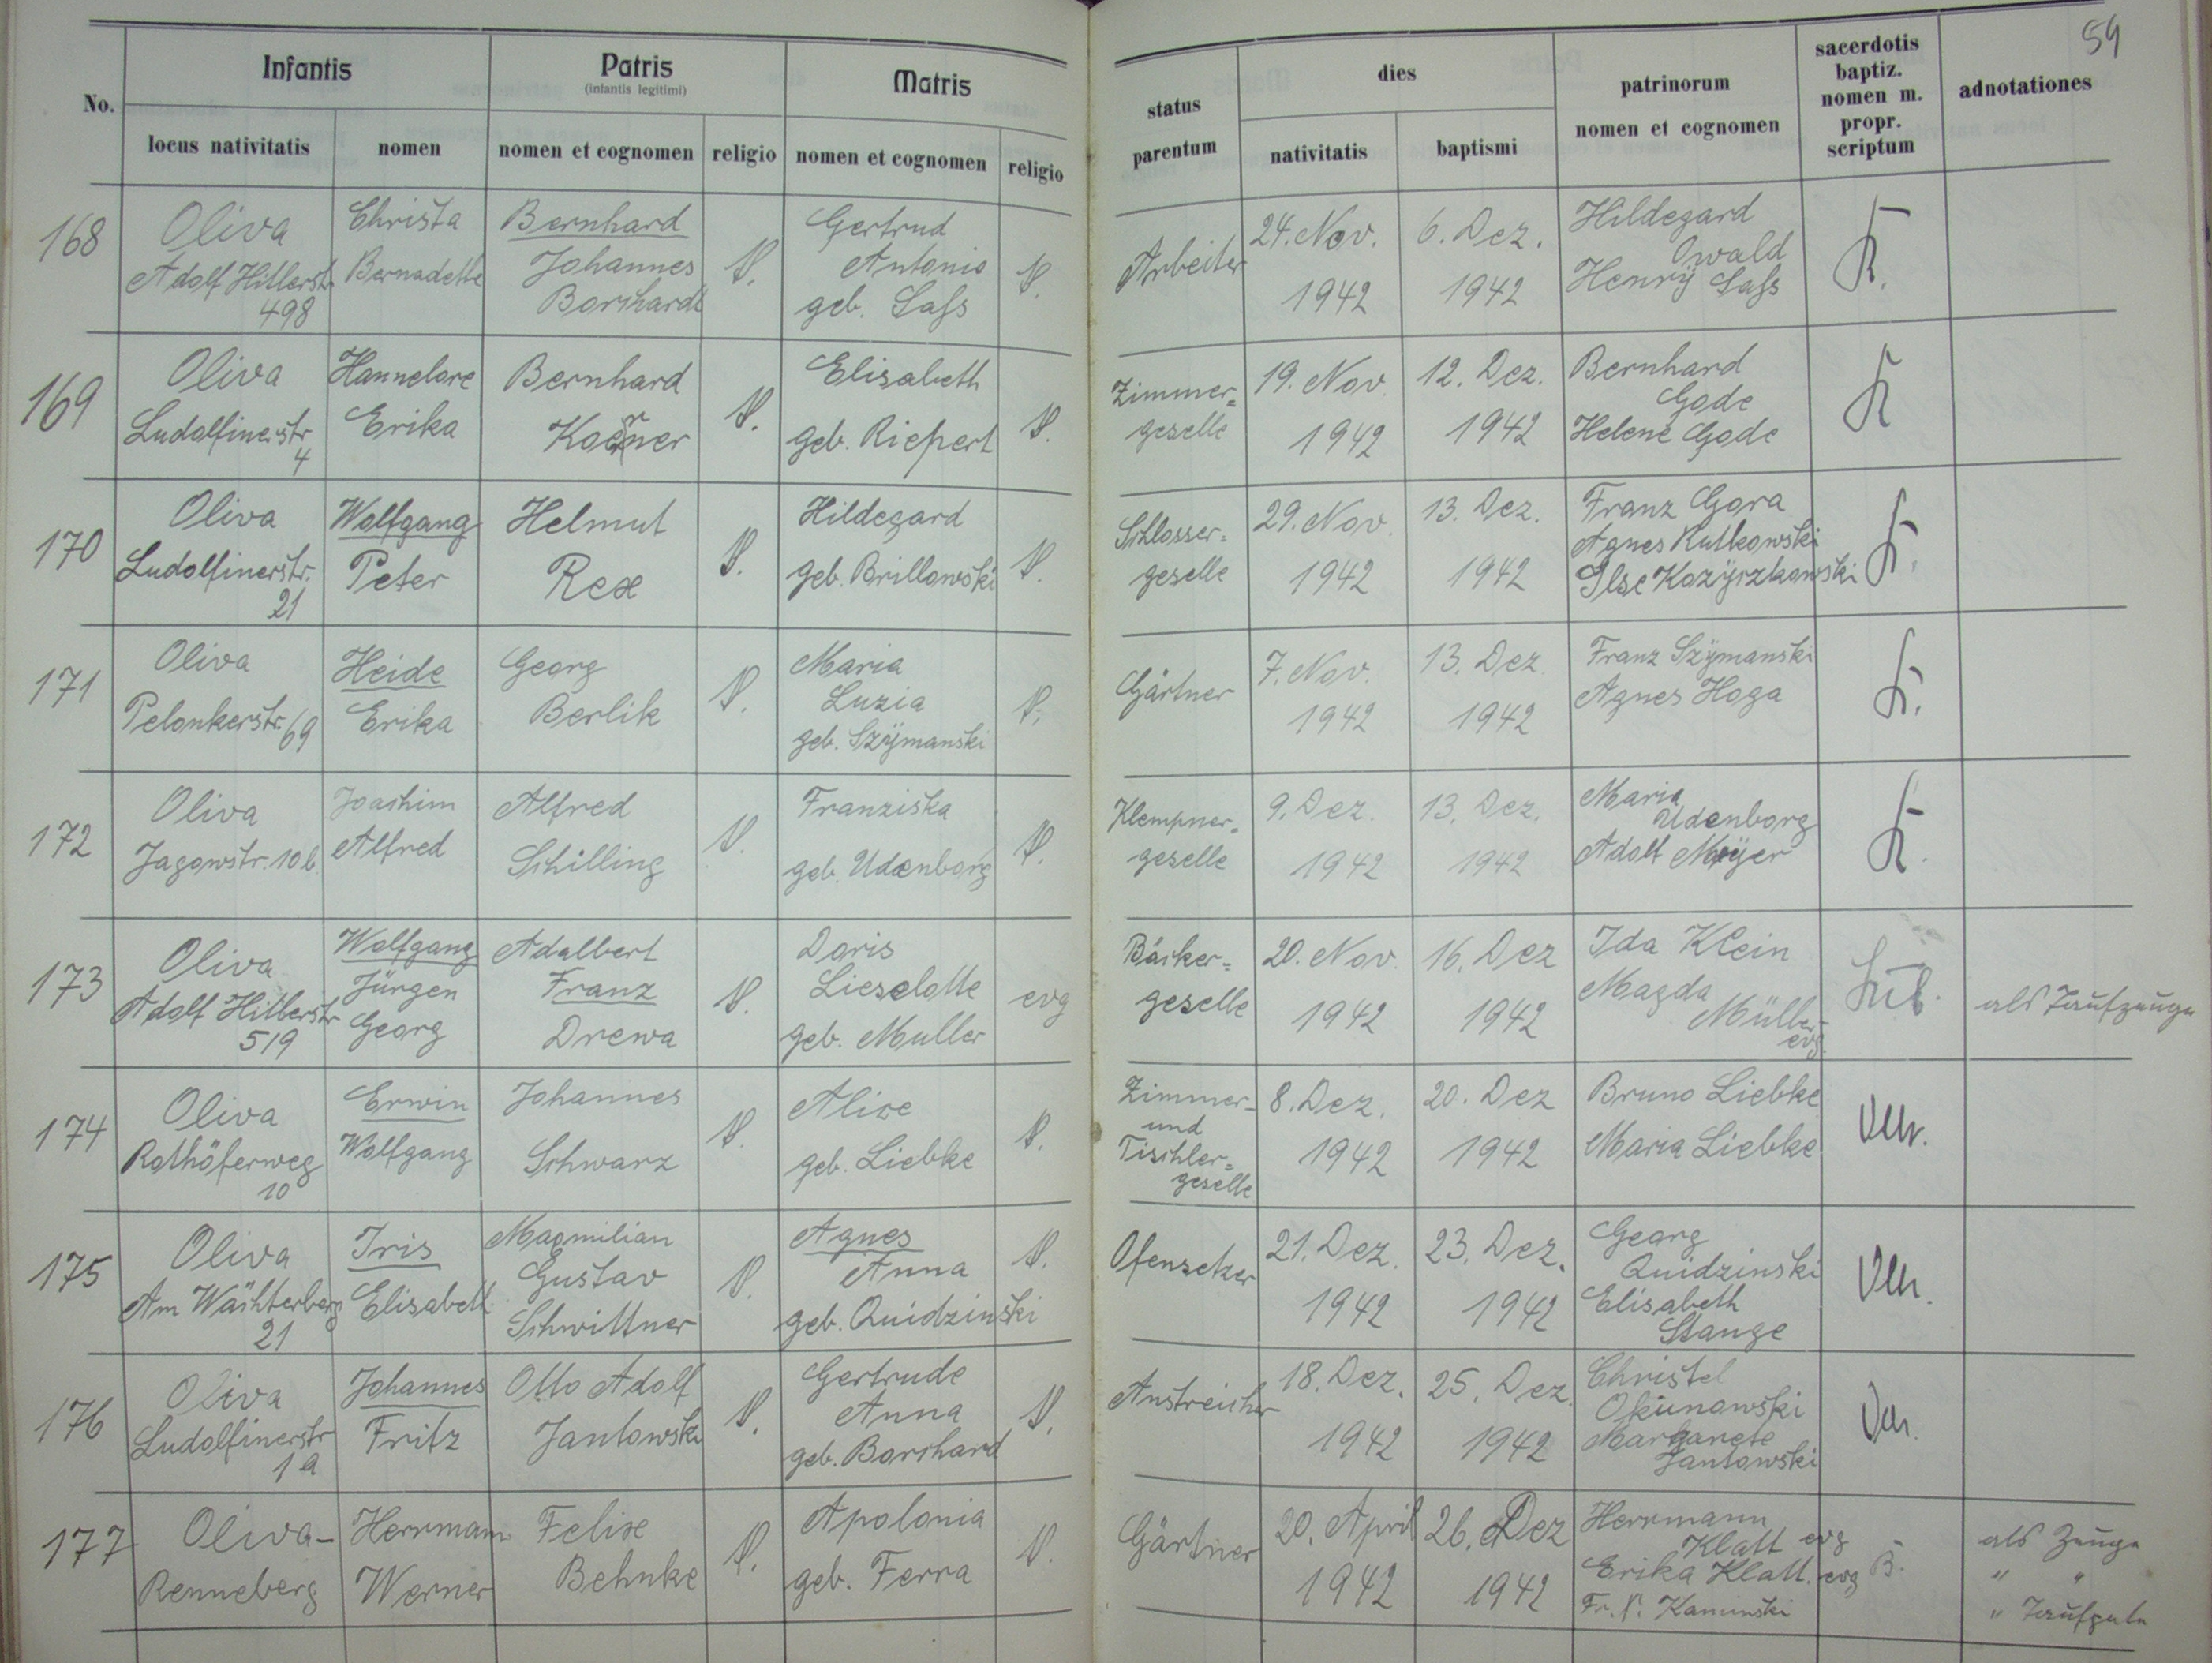 59
No.
Infantis
Patris
(infantis legitimi)
Matris
status parentum
dies
patrinorum nomen et cognomen
sacerdotis baptiz. nomen m. propr. scriptum
adnotationes
locus nativitatis
nomen
nomen et cognomen
religio
nomen et cognomen
religio
nativitatis
baptismi
168
Oliva
Adolf Hitlerstr.
498
Christa
Bernadette
Bernhard
Johannes
Borchardt
Gertrud
Antonie
geb. Saſs
Arbeiter
24. Nov.
1942
6. Dez.
1942
Hildegard
Owald
Henry Saſs
K.
169
Oliva
Ludolfinerstr
4
Hannelore
Erika
Bernhard
Elisabeth
geb. Riepert
Zimmer=
geselle
19. Nov.
1942
12. Dez.
1942
Bernhard
Gode
Helene Gode
K
170
Oliva
Ludolfinerstr.
21
Wolfgang
Peter
Helmut
Rex
Hildegard
geb. Brillowski
Schlosser=
geselle
29. Nov.
1942
13. Dez.
1942
Franz Gora
Agnes Rutkowski
Ilse Kozyczkowski
K.
171
Oliva
Pelonkerstr. 69
Heide
Erika
Georg
Berlik
Maria
Luzia
geb. Szymanski
Gärtner
7. Nov.
1942
13. Dez.
1942
Franz Szymanski
Agnes Hoga
K.
172
Oliva
Jagowstr. 10b
Joachim
Alfred
Alfred
Schilling
Franziska
geb. Udenborg
Klempner=
geselle
9. Dez.
1942
13. Dez.
1942
Maria
Udenborg
Adolf Meyer
K.
173
Oliva
Adolf Hitlerstr
519
Wolfgang
Jürgen
Georg
Adalbert
Franz
Drewa
Doris
Lieselotte
geb. Muller
evg
Bäcker=
geselle
20. Nov.
1942
16. Dez
1942
Ida Klein
Magda
Müller
evg.
als Taufzeuge
174
Oliva
Rathöferweg
10
Erwin
Wolfgang
Johannes
Schwarz
Alice
geb. Liebke
Zimmer-
und
Tischler=
geselle
8. Dez.
1942
20. Dez
1942
Bruno Liebke
Maria Liebke
175
Oliva
Am Wächterberg
21
Iris
Elisabeth
Maxmilian
Gustav
Schwittner
Agnes
Anna
geb. Quidzinski
Ofensetzer
21. Dez.
1942
23. Dez.
1942
Georg
Quidzinski
Elisabeth
Stange
176
Oliva
Ludolfinerstr
1a
Johannes
Fritz
Otto Adolf
Jantowski
Gertrude
Anna
geb. Borchard
Anstreicher
18. Dez.
1942
25. Dez.
1942
Christel
Okunowski
Margarete
Jantowski
177
Oliva-
Renneberg
Herrmann
Werner
Felixe
Behnke
Apolonia
geb. Ferra
Gärtner
20. April
1942
26. Dez
1942
Herrmann
Klatt evg
Erika Klatt. evg
Kaminski
B.
als Zeuge
" "
" Taufpate